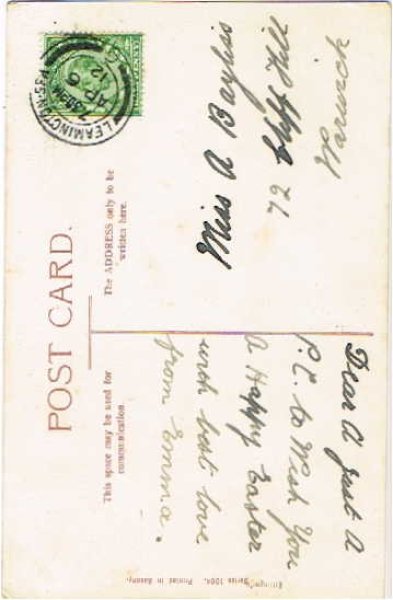 POST CARD.
This space may be used for
communication.
The ADDRESS only to be
written here.
LEAMINGTON-SPA
AP 6
12
Dear A Just A
P.C. to Wish You
A Happy Easter
with best love
from Emma.
Miss A Bayliss
72 Cliff Hill
Warwick
Series 1004. Printed in Saxony.